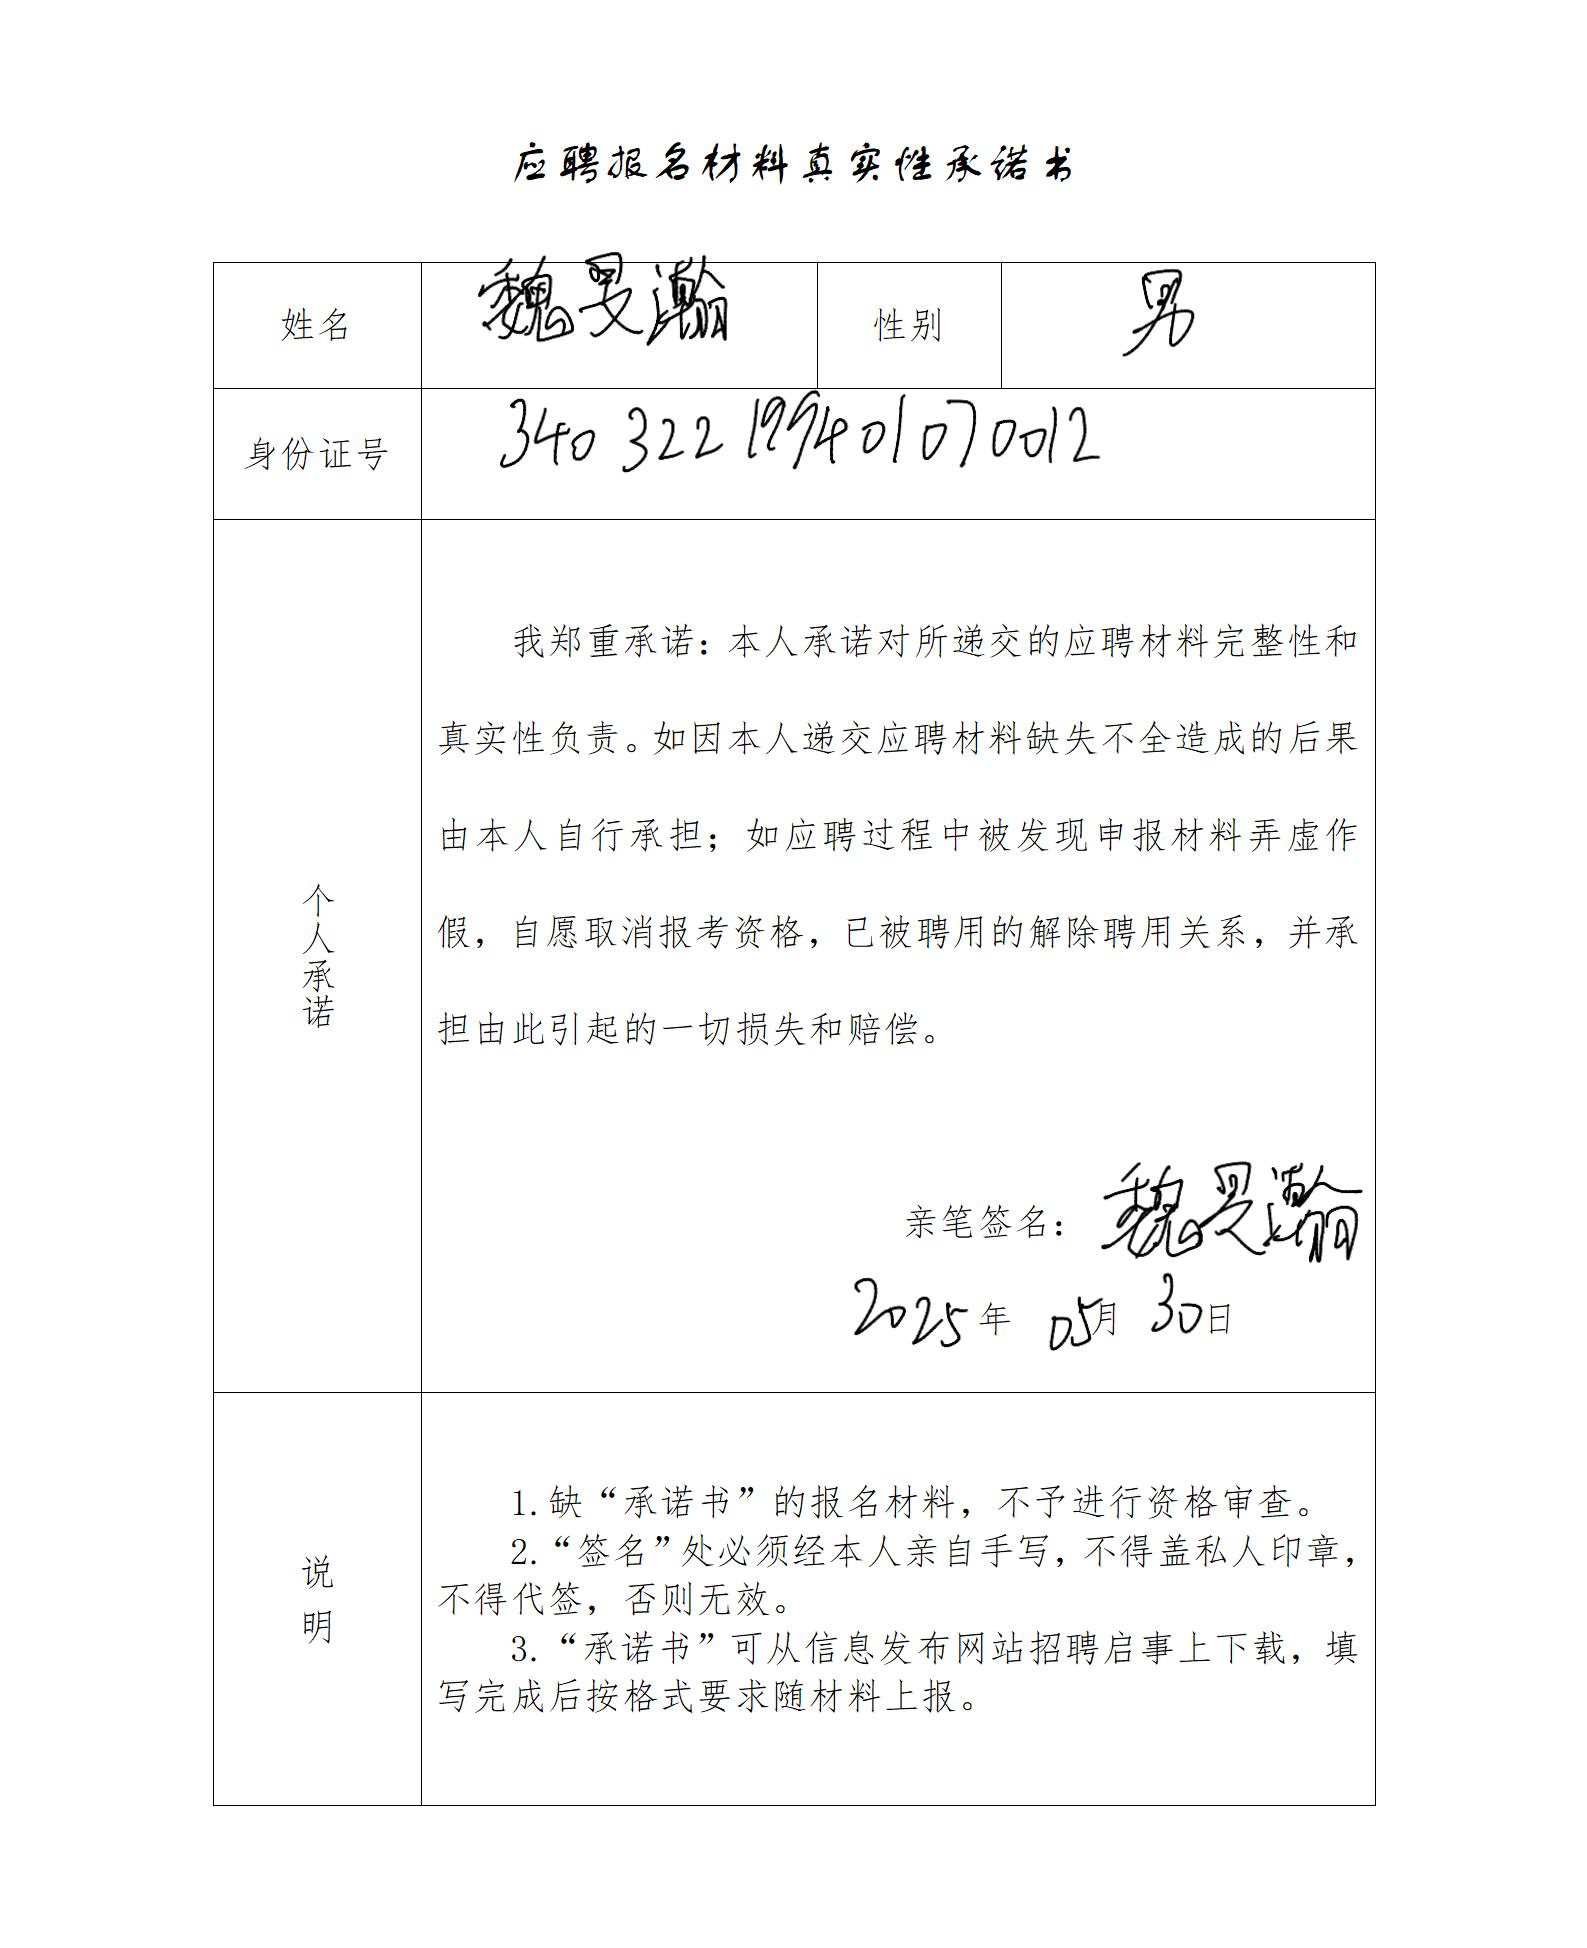 应聘报名材料真实性承诺书
姓名 魏旻瀚 性别 男
身份证号 340322199401070012
个人承诺
我郑重承诺：本人承诺对所递交的应聘材料完整性和
真实性负责。如因本人递交应聘材料缺失不全造成的后果
由本人自行承担；如应聘过程中被发现申报材料弄虚作
假，自愿取消报考资格，已被聘用的解除聘用关系，并承
担由此引起的一切损失和赔偿。
亲笔签名：魏旻瀚
2025年 05月 30日
说明
1.缺“承诺书”的报名材料，不予进行资格审查。
2.“签名”处必须经本人亲自手写，不得盖私人印章，
不得代签，否则无效。
3.“承诺书”可从信息发布网站招聘启事上下载，填
写完成后按格式要求随材料上报。